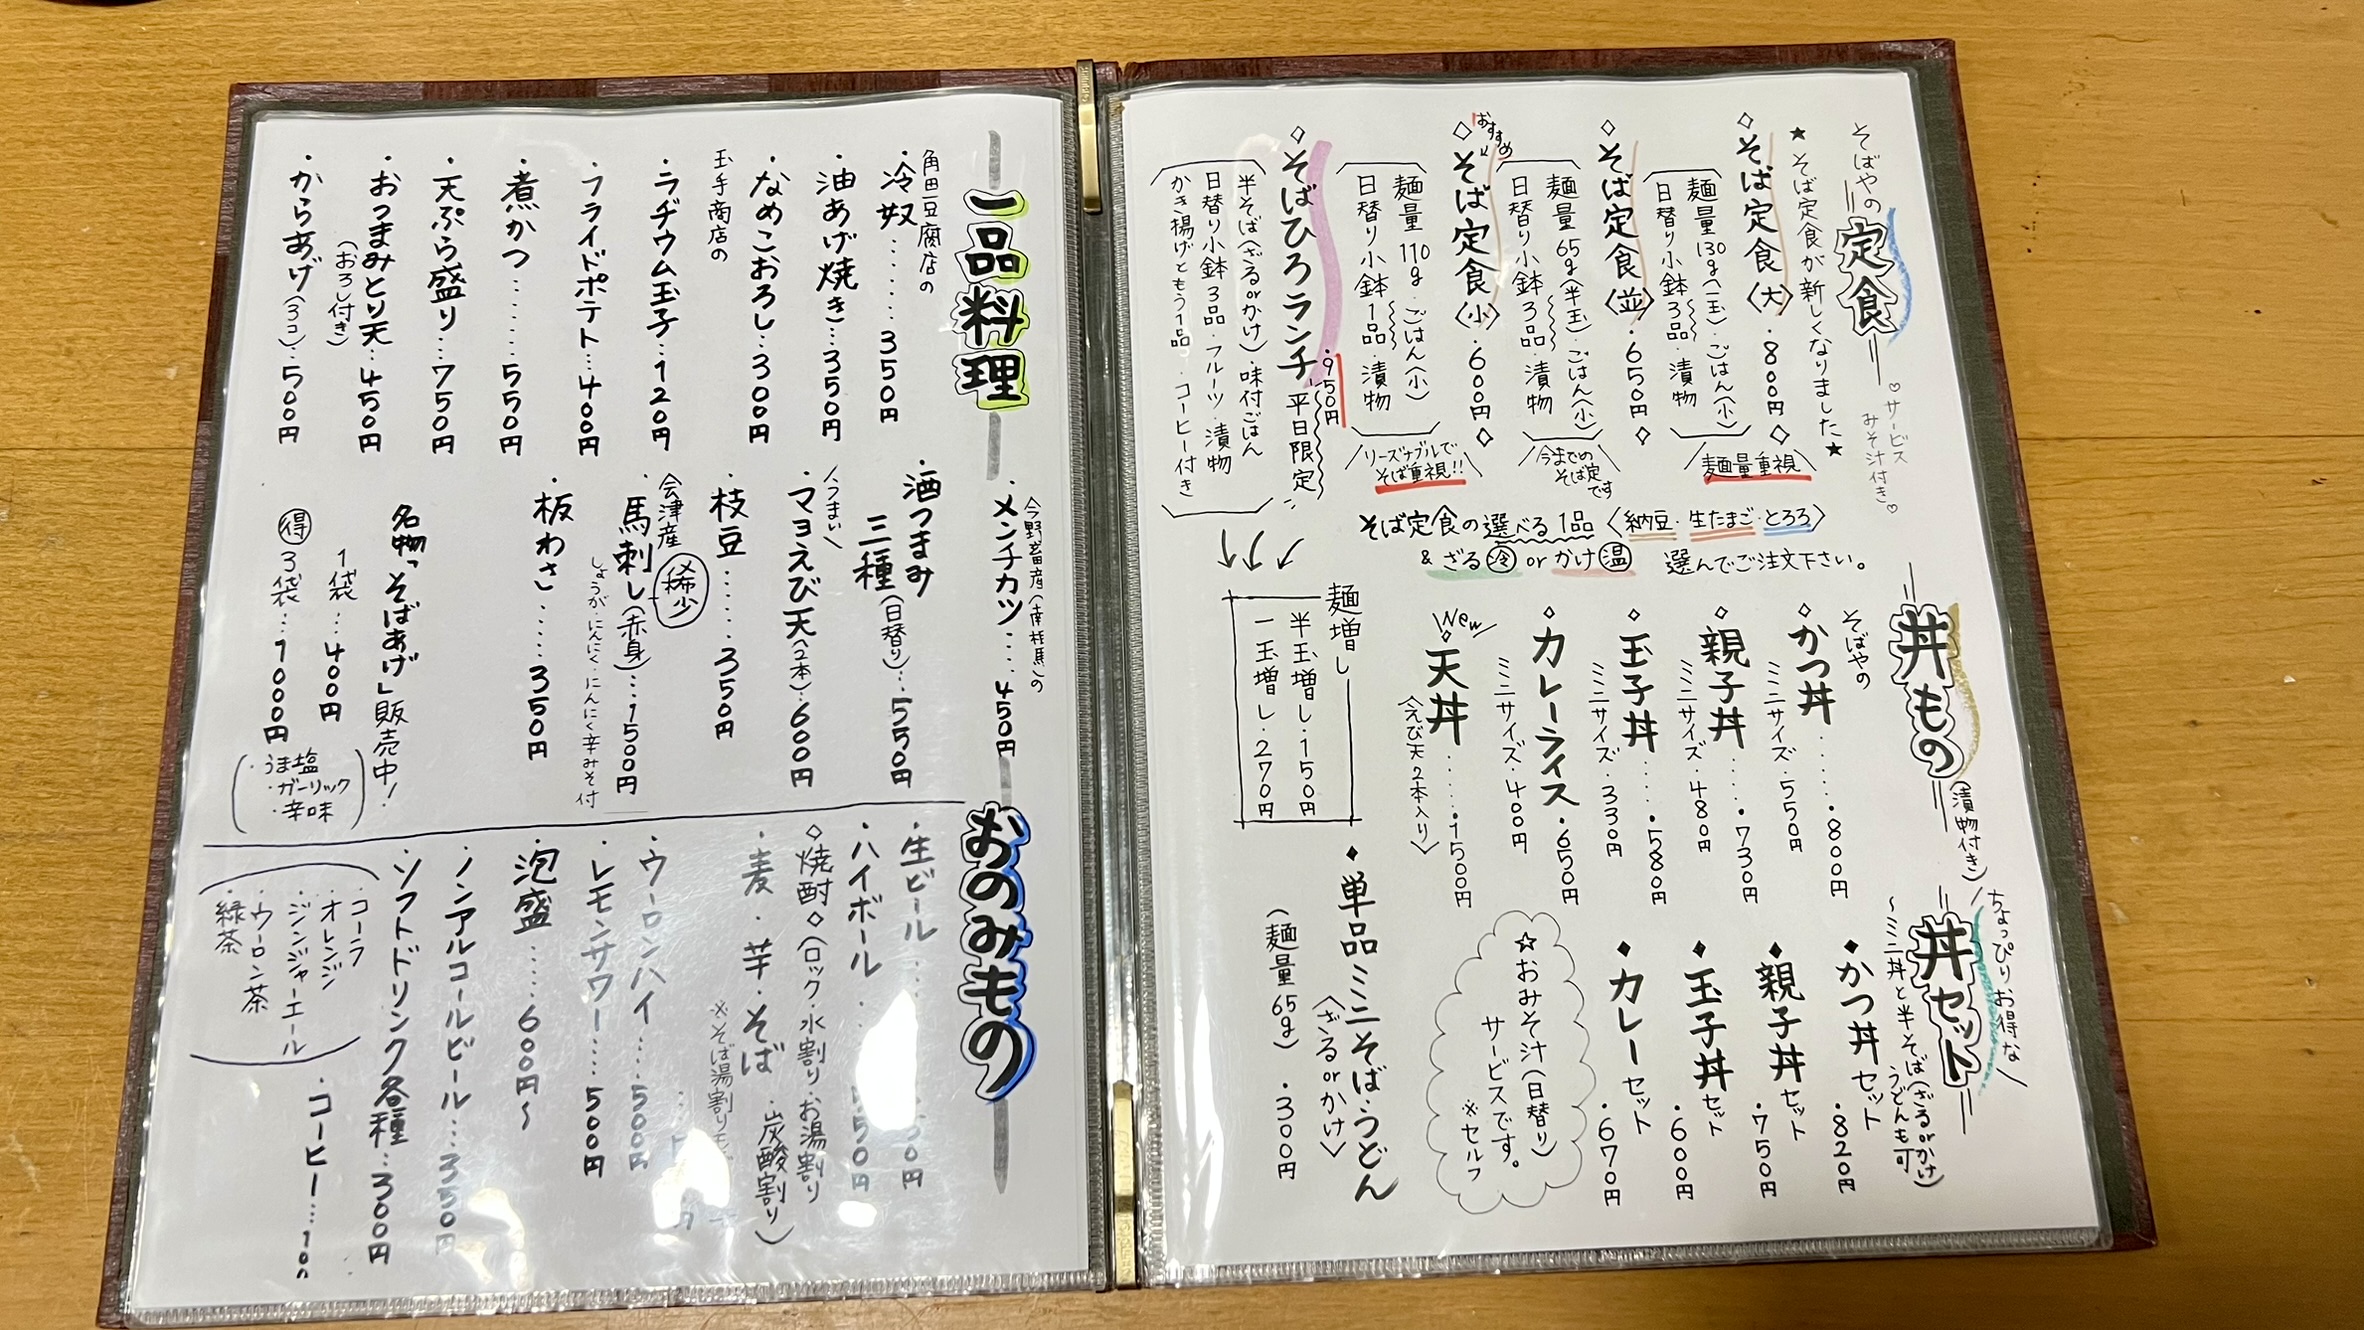 そばやの
定食
♡サービス
みそ汁付き♡
★そば定食が新しくなりました★
◇そば定食〈大〉・800円◇
麺量130g(一玉)・ごはん(小)
日替り小鉢3品・漬物
麺量重視
◇そば定食〈並〉・650円◇
麺量65g(半玉)・ごはん(小)
日替り小鉢3品・漬物
今までの
そば定
です
おすすめ
◇そば定食〈小〉・600円◇
麺量110g・ごはん(小)
日替り小鉢1品・漬物
リーズナブルで
そば重視!!
◇そばひろランチ 平日限定
・950円
半そば(ざるorかけ)・味付ごはん
日替り小鉢3品・フルーツ・漬物
かき揚げともう1品・コーヒー付き
そば定食の選べる1品〈納豆・生たまご・とろろ〉
&ざる冷orかけ温 選んでご注文下さい。
丼もの
(漬物付き)
そばやの
◇かつ丼・・・・・800円
ミニサイズ・550円
◇親子丼・・・・730円
ミニサイズ・480円
◇玉子丼・・・・580円
ミニサイズ・330円
◇カレーライス・650円
ミニサイズ・400円
New
◇天丼・・・・・1500円
〈えび天2本入り〉
麺増し
半玉増し・150円
一玉増し・270円
ちょっぴりお得な
丼セット
〜ミニ丼と半そば(ざるorかけ)
うどんも可
◆かつ丼セット・820円
◆親子丼セット・750円
◆玉子丼セット・600円
◆カレーセット・670円
☆おみそ汁(日替り)
サービスです。
※セルフ
◆単品ミニそば・うどん
〈ざるorかけ〉
(麺量65g)・300円
一品料理
角田豆腐店の
・冷奴・・・・・350円
・油あげ焼き・・・350円
・なめこおろし・・300円
玉手商店の
・ラヂウム玉子・・120円
・フライドポテト・・・400円
・煮かつ・・・・・550円
・天ぷら盛り・・・750円
・おつまみとり天・・・450円
(おろし付き)
・からあげ(3コ)・・500円
今野畜産(南相馬)の
・メンチカツ・・・・450円
・酒つまみ
三種(日替り)・・・550円
\うまい/
・マヨえび天(2本)・・600円
・枝豆・・・・・・350円
会津産
稀少
・馬刺し(赤身)・・・1500円
しょうが・にんにく・にんにく辛みそ付
・板わさ・・・・・350円
名物「そばあげ」販売中!
1袋・・・400円
得 3袋・・・1000円
・うま塩
・ガーリック
・辛味
おのみもの
・生ビール
・ハイボール
◇焼酎◇(ロック・水割り・お湯割り
・炭酸割り)
・麦・芋・そば
※そば湯割りも
・ウーロンハイ・・・500円
・レモンサワー・・・・500円
・泡盛・・・・・600円〜
・ノンアルコールビール・・・350円
・ソフトドリンク各種・・・300円
・コーラ
・オレンジ
・ジンジャーエール
・ウーロン茶
・緑茶
・コーヒー・・・